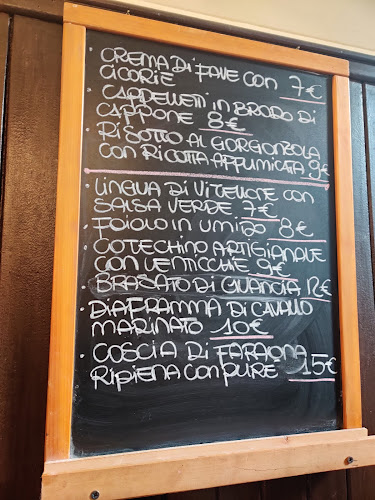 • CREMA DI FAVE CON 7€
CICORIE
• CAPPELLETTI IN BRODO DI
CAPPONE 8€
• RISOTTO AL GORGONZOLA
CON RICOTTA AFFUMICATA 9€
• LINGUA DI VITELLONE CON
SALSA VERDE 7€
• FOIOLO IN UMIDO 8€
• COTECHINO ARTIGIANALE
CON LENTICCHIE 9€
• BRASATO DI GUANCIA 12€
• DIAFRAMMA DI CAVALLO
MARINATO 10€
• COSCIA DI FARAONA
RIPIENA CON PURE 15€